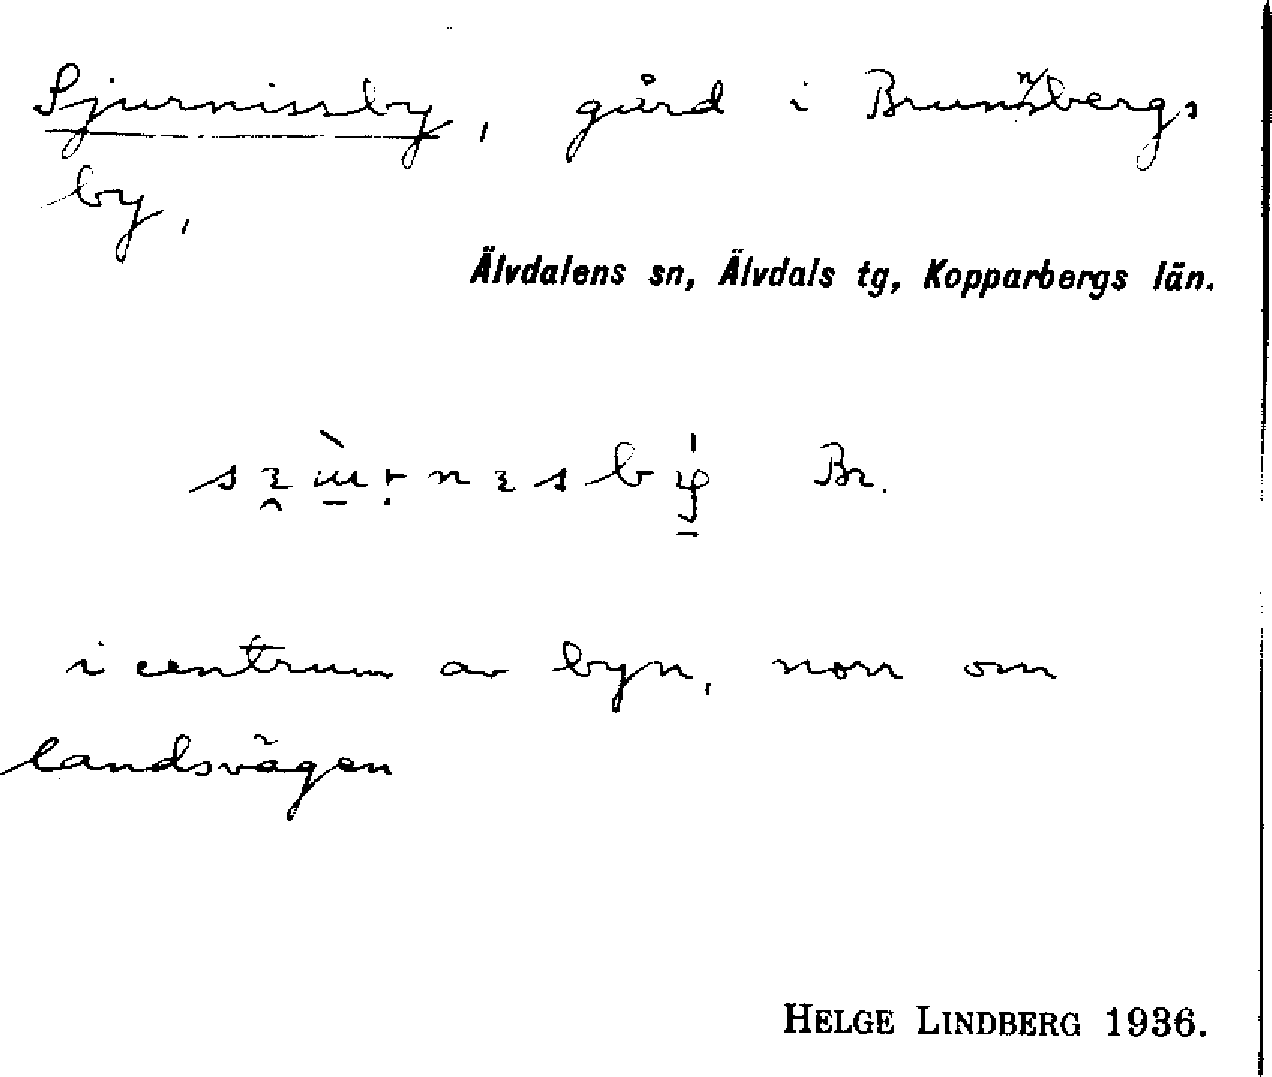 Sjurnissby, gård i Brunnbergs
by,
Älvdalens sn, Älvdals tg, Kopparbergs län.
Br.
i centrum av byn, norr om
landsvägen
HELGE LINDBERG 1936.